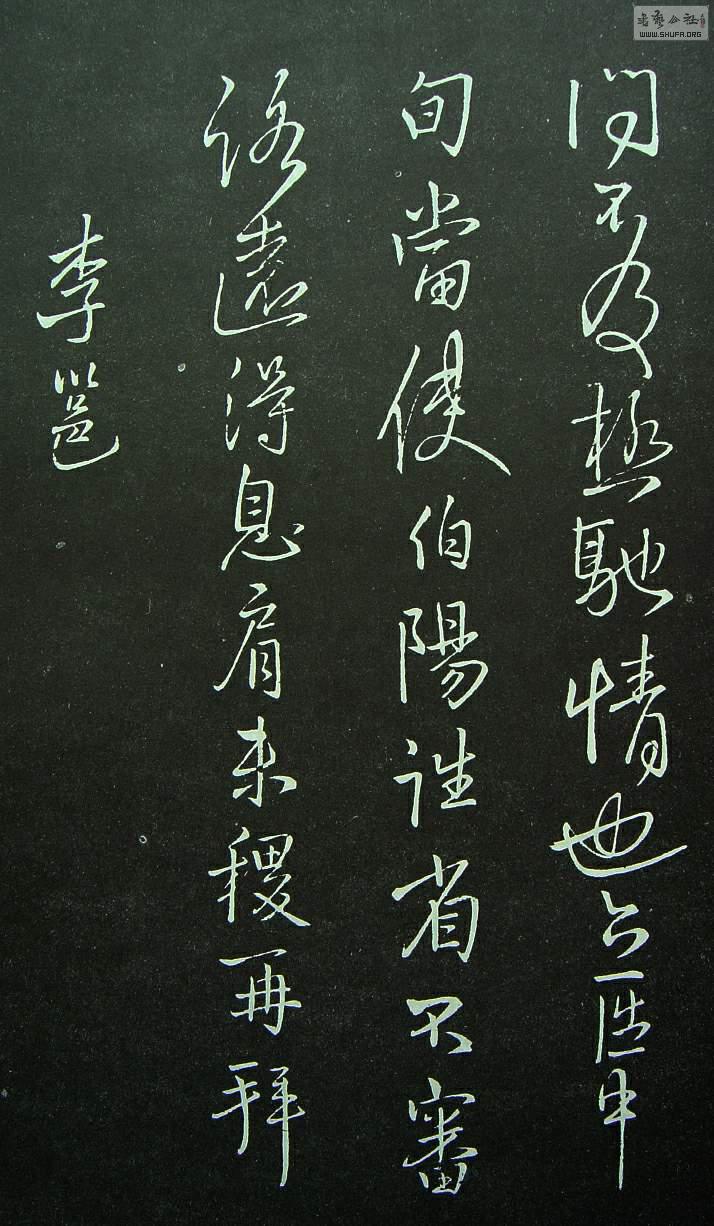 書藝公社
WWW.SHUFA.ORG
問不及極馳情也中
旬當使伯陽省不審
路遠得息肩未稷再拜
李邕